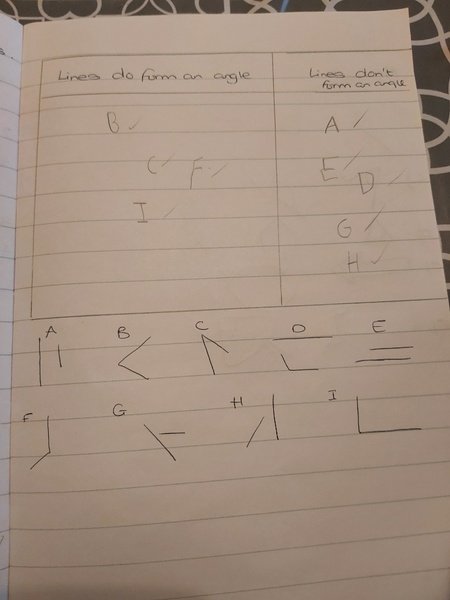 Lines do form an angle
Lines don't
form an angle
B
A
C F
E
D
I
G
H
A B C D E
F G H I